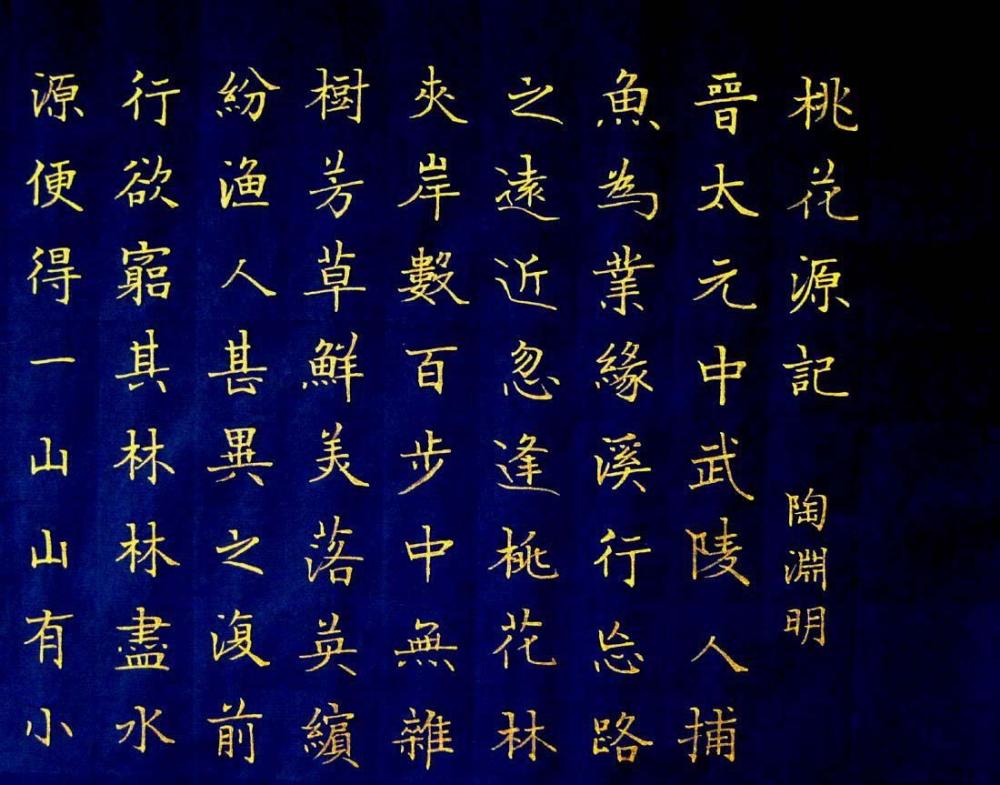 桃花源記 陶淵明
晉太元中武陵人捕
魚為業緣溪行忘路
之遠近忽逢桃花林
夾岸數百步中無雜
樹芳草鮮美落英繽
紛漁人甚異之復前
行欲窮其林林盡水
源便得一山山有小